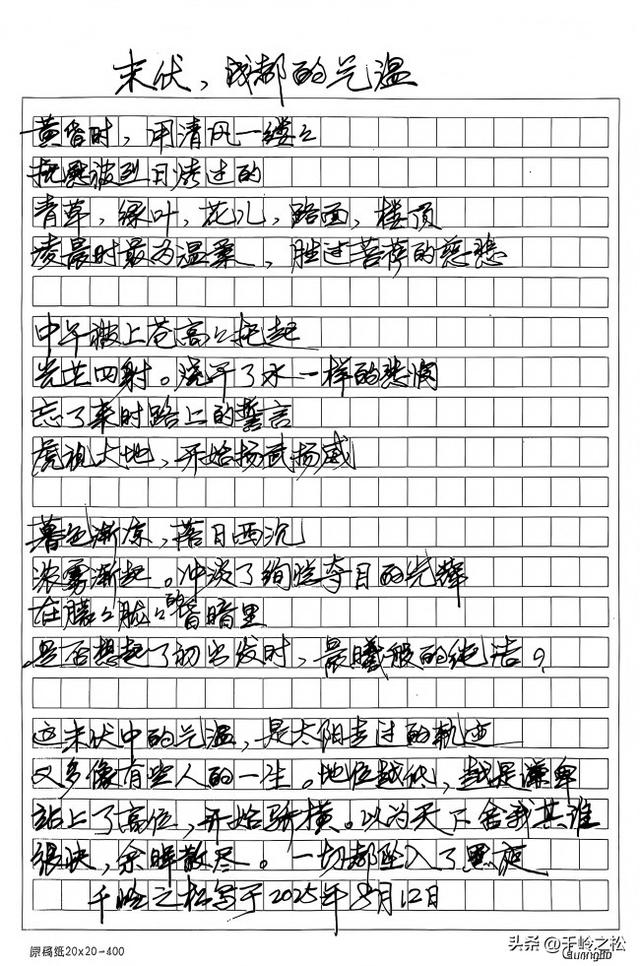 末伏，成都的气温
黄昏时，用清风一缕々
抚慰被烈日烤过的
青草，绿叶，花儿，路面，楼顶
凌晨时最为温柔，胜过菩萨的慈悲
中午被上苍高々托起
光芒四射。烧干了水一样的悲悯
忘了来时路上的誓言
虎视大地，开始扬武扬威
暮色渐凉，落日西沉
浓雾渐起。冲淡了绚烂夺目的光辉
在朦々胧々的昏暗里
是否想起了初出发时，晨曦般的纯洁？
这末伏中的气温，是太阳走过的轨迹
又多像有些人的一生。地位越低，越是谦卑
站上了高位，开始骄横。以为天下舍我其谁
很快，余晖散尽。一切都坠入了黑夜
千岭之松写于2025年8月12日
原稿纸20x20-400
头条@千岭之松